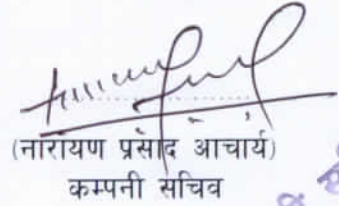 (नारायण प्रसाद आचार्य)
कम्पनी सचिव